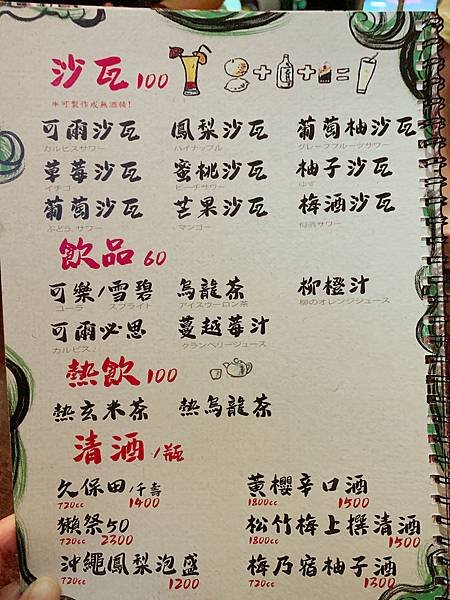 沙瓦 100
*可製作成無酒精!
可爾沙瓦 鳳梨沙瓦 葡萄柚沙瓦
カルピスサワー パイナップル グレープフルーツサワー
草莓沙瓦 蜜桃沙瓦 柚子沙瓦
イチゴ ピーチサワー ゆず
葡萄沙瓦 芒果沙瓦 梅酒沙瓦
ぶどう サワー マンゴー 梅酒サワー
飲品 60
可樂/雪碧 烏龍茶 柳橙汁
コーラ スプライト アイスウーロン茶 柳のオレンジジュース
可爾必思 蔓越莓汁
カルピス クランベリージュース
熱飲 100
熱玄米茶 熱烏龍茶
清酒/瓶
久保田/千壽 黃櫻辛口酒
720cc 1400 1800cc 1500
獺祭50 松竹梅上撰清酒
720cc 2300 1800cc 1500
沖繩鳳梨泡盛 梅乃宿柚子酒
720cc 1200 720cc 1300